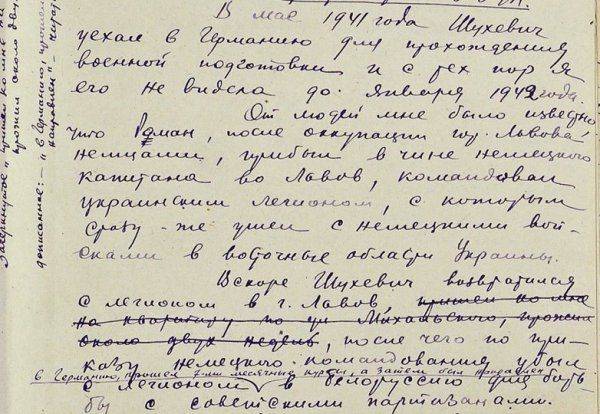 В мае 1941 года Шухевич
уехал в Германию для прохождения
военной подготовки и с тех пор я
его не видела до января 1942 года.
От людей мне было известно,
что Роман, после оккупации гор. Львова
немцами, прибыл в чине немецкого
капитана во Львов, командовал
украинским легионом, с которым
сразу-же ушел с немецкими вой-
сками в восточные области Украины.
Вскоре Шухевич возвратился
с легионом в г. Львов, пришел ко мне
на квартиру по ул. Михальского, прожил
около двух недель, после чего по при-
казу немецкого командования убыл
в Германию, прошел 7-ми месячные курсы, а затем был направлен
с легионом в Белоруссию для борь-
бы с советскими партизанами.
Зачеркнутое "пришел ко мне на
прожил около дву
дописанное: - "в Германию, прошел
направлен" - читат